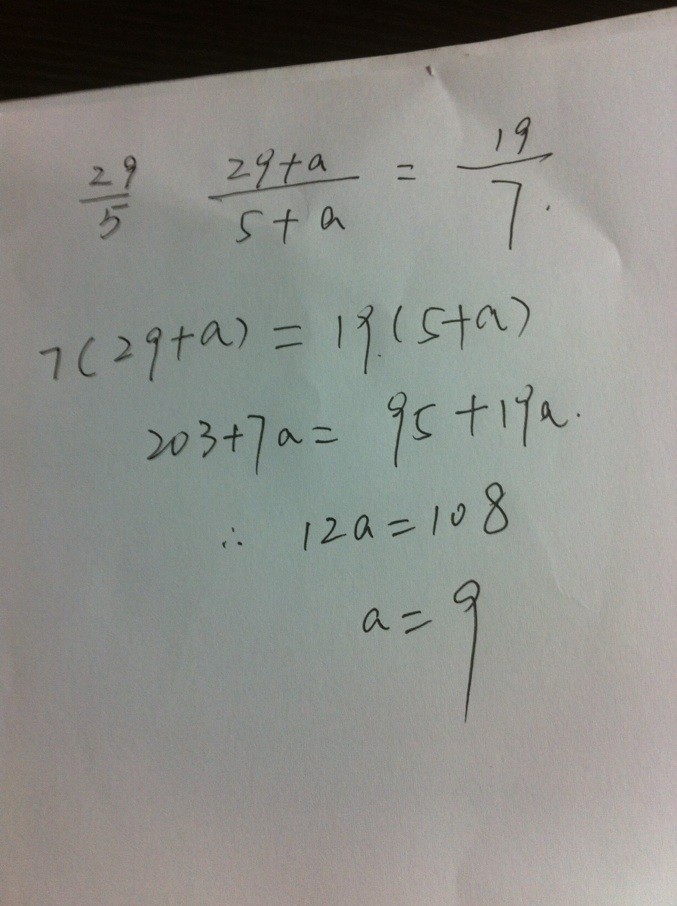 29/5 (29+a)/(5+a) = 19/7.
7(29+a) = 19.(5+a)
203+7a = 95+19a.
∴ 12a = 108
a = 9